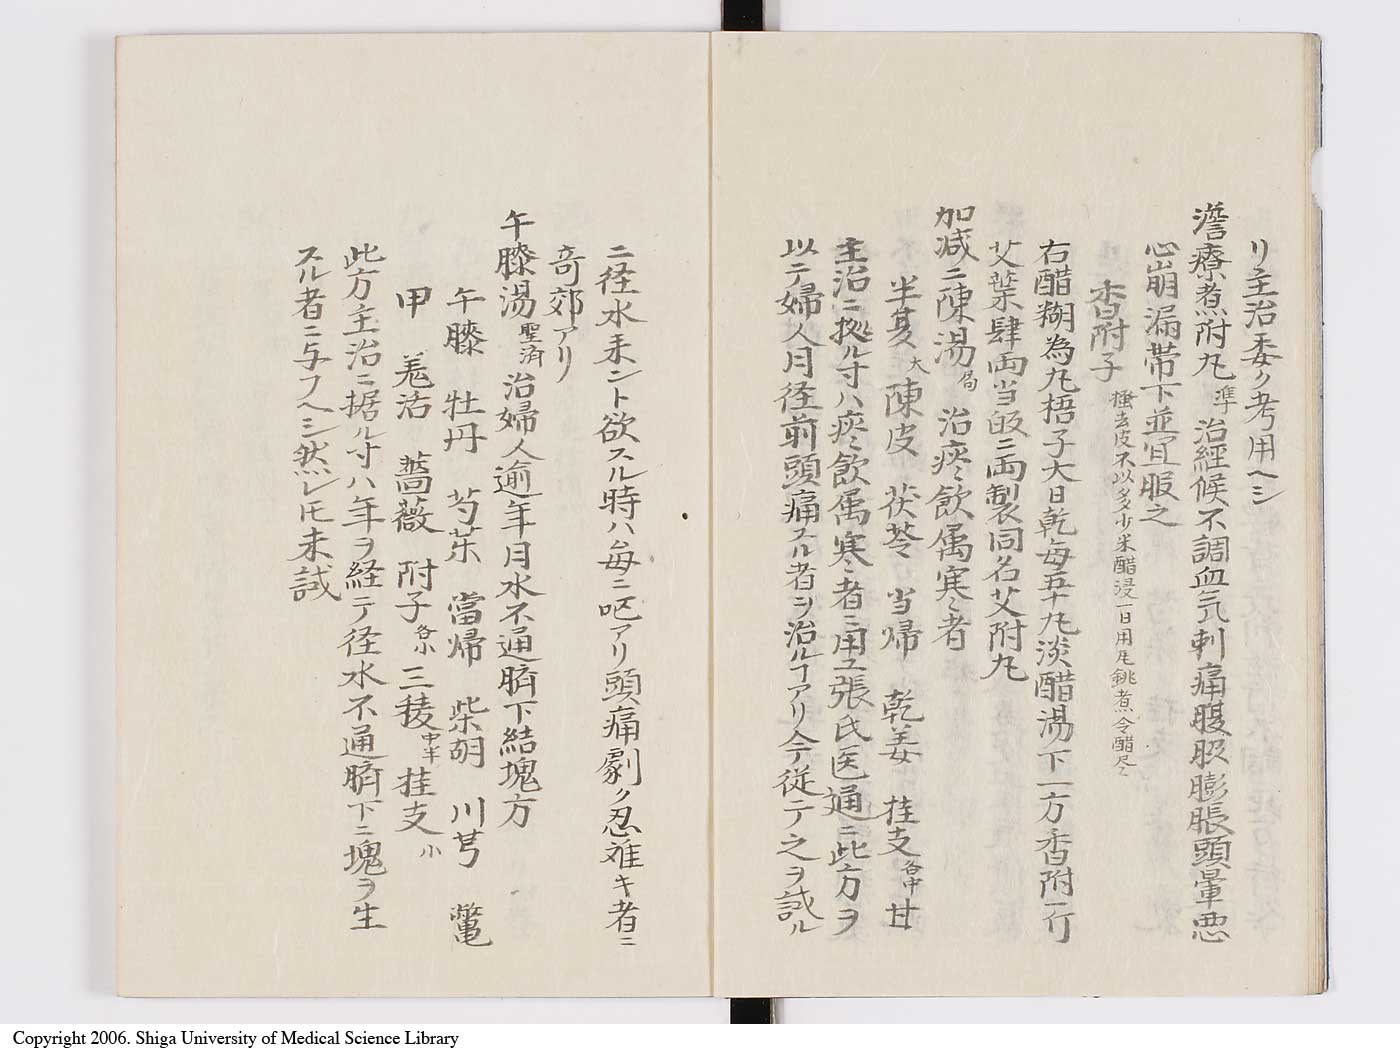 リ主治委ク考用ヘシ
澹療煮附丸 準 治経候不調血気刺痛腹脇膨脹頭暈悪
心崩漏帯下並宜服之
香附子 擂去皮不以多少米醋浸一日用瓦銚煮令醋尽
右醋糊為丸梧子大日乾毎五十丸淡醋湯下一方香附一斤
艾葉肆両当皈二両製同名艾附丸
加減二陳湯 局 治痰飲属寒者
半夏 大 陳皮 茯苓 当帰 乾姜 桂支 各中 甘
主治ニ拠ル寸ハ痰飲属寒者ニ用ユ張氏医通ニ此方ヲ
以テ婦人月径前頭痛スル者ヲ治ルヿアリ今従テ之ヲ試ル
ニ径水来ント欲スル時ハ毎ニ呕アリ頭痛劇ク忍難キ者ニ
奇効アリ
午膝湯 聖済 治婦人逾年月水不通臍下結塊方
午膝 牡丹 芍薬 當帰 柴胡 川芎 鼈
甲 羗活 薔薇 附子 各小 三稜 中半 桂支 小
此方主治ニ据ル寸ハ年ヲ経テ径水不通臍下ニ塊ヲ生
スル者ニ与フヘシ然レ𪜈未試
Copyright 2006. Shiga University of Medical Science Library